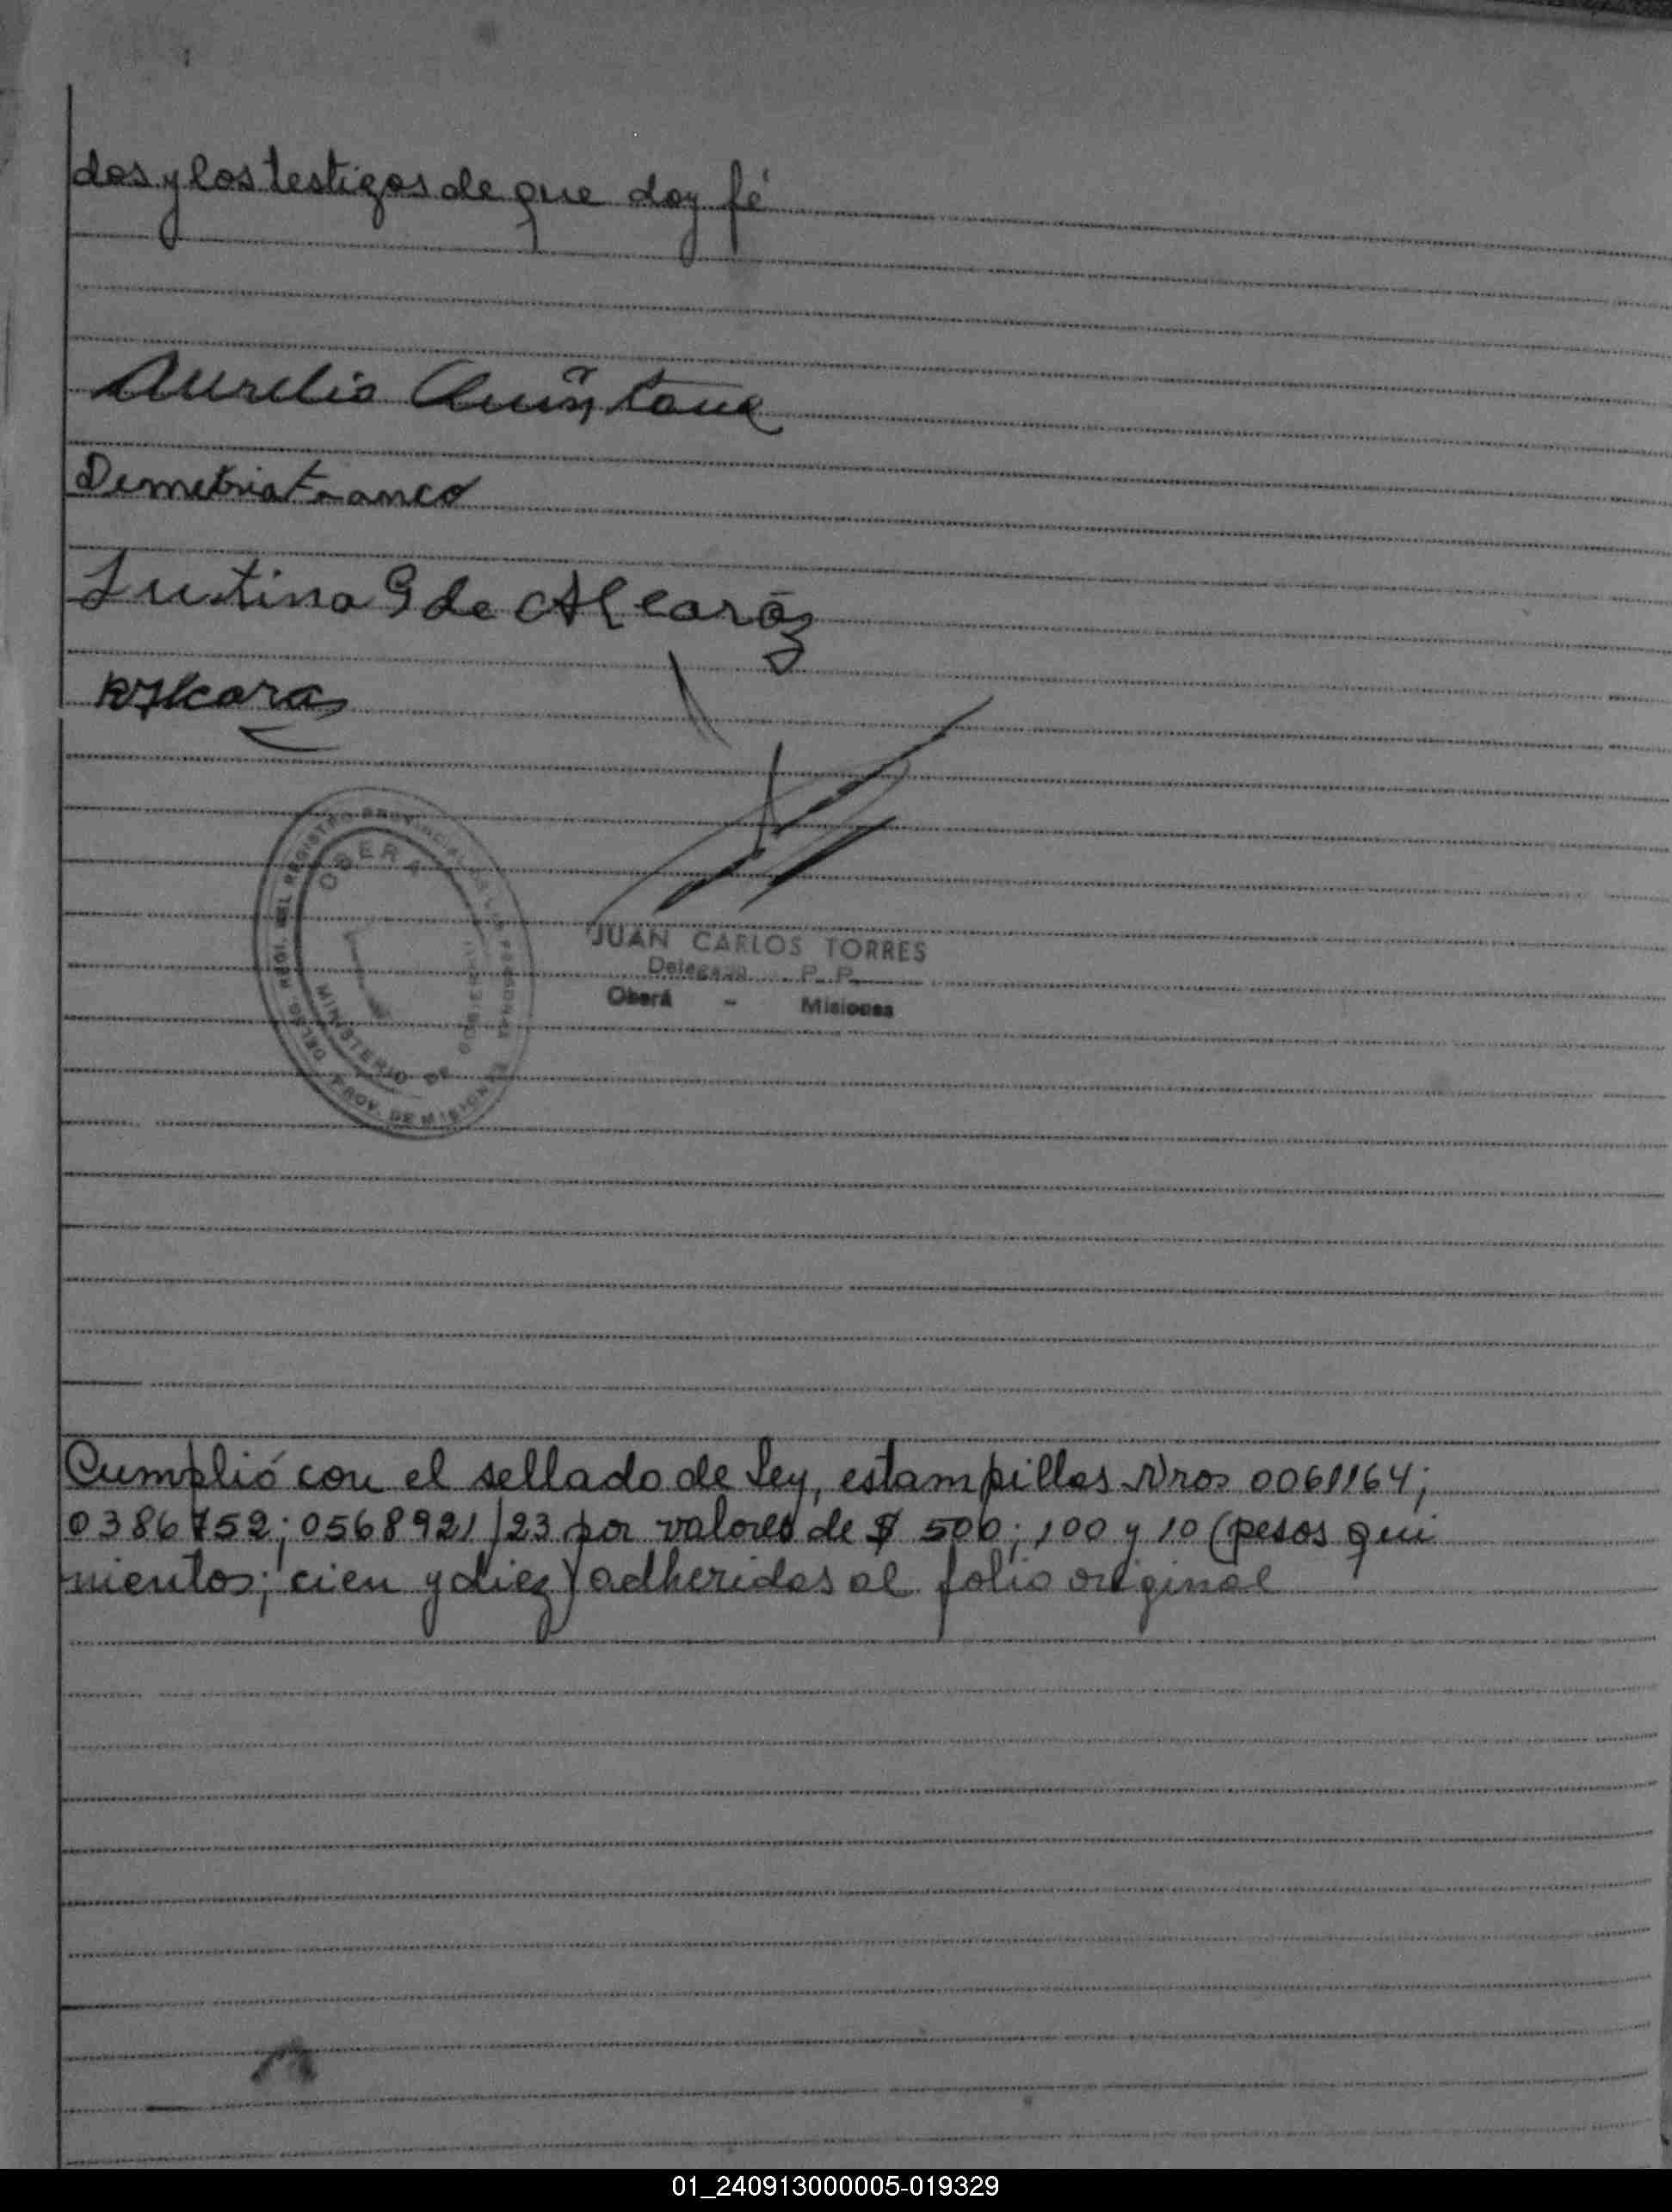 dos y los testigos de que doy fé
Aurelio Quintana
Demetria Franco
Justina G de Alcaráz
Alcaraz
DELEG. REGI. DEL REGISTRO PROVINCIAL DE LAS PERSONAS
OBERA
MINISTERIO DE GOBIERNO
PROV. DE MISIONES
JUAN CARLOS TORRES
Delegado P. P.
Oberá - Misiones
Cumplió con el sellado de Ley, estampillas Nros 0061164;
0386752; 0568921/23 por valores de $ 500; 100 y 10 (pesos qui
nientos; cien y diez) adheridas al folio original
01_240913000005-019329